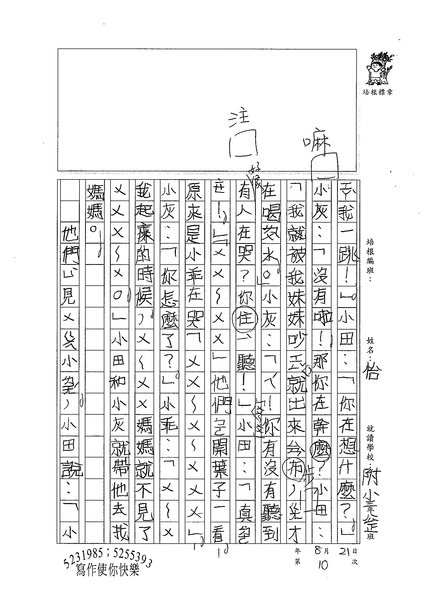 培根標章
培根編班：
姓名：怡
就讀學校：附小 班
8月21日 次
年第 10
嘛
注
丟我一跳！」小田：「你在想什麼？」
小灰：「沒有啦！那你在幹麼」小田：
「我就被我妹妹吵 就出來 ，坐才
在喝 水。」小灰：「ㄟ！你有沒有聽到
有人在哭？你住 聽！」小田：「真的
ㄝ！」「ㄨ～ㄨㄨ」他們 開葉子一看，
原來是小乖在哭「ㄨㄨ～ㄨㄨ」
小灰：「你怎麼了？」小乖：「ㄨ～ㄨ
我起床的時候，ㄨ～ㄨㄨ媽媽就不見了
ㄨㄨㄨ～ㄨ。」小田和小灰就帶他去找
媽媽。
他們 見 小 ，小田說：「小
5231985；5255393
寫作使你快樂